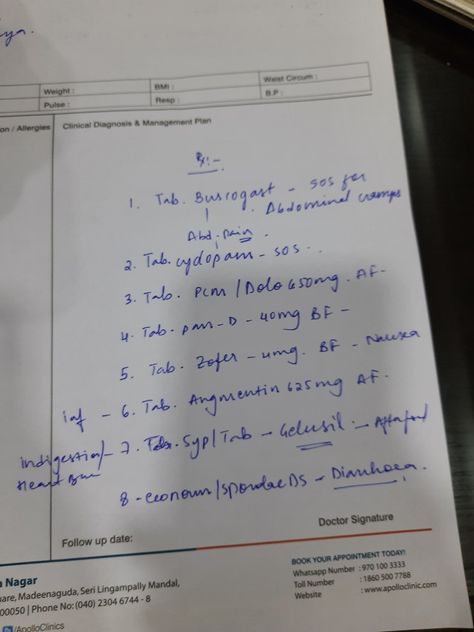 Weight : BMI : Waist Circum :
Pulse : Resp : B.P :
on / Allergies Clinical Diagnosis & Management Plan
Rx:-
1. Tab. Buscogast - SOS for
Abdominal cramps
Abd. pain.
2. Tab. cyclopam - SOS.
3. Tab. PCM / Dolo 650mg. AF.
4. Tab. pan-D - 40mg BF -
5. Tab. Zofer - 4mg. BF - Nausea
inf - 6. Tab. Augmentin 625mg AF.
indigestion/ - 7. Syp/Tab - Gelusil - After food
Heart Burn
8 - econorm/sporolac DS - Diarrhoea.
Doctor Signature
Follow up date:
BOOK YOUR APPOINTMENT TODAY!
a Nagar Whatsapp Number : 970 100 3333
uare, Madeenaguda, Seri Lingampally Mandal, Toll Number : 1860 500 7788
00050 | Phone No: (040) 2304 6744 - 8 Website : www.apolloclinic.com
/ApolloClinics